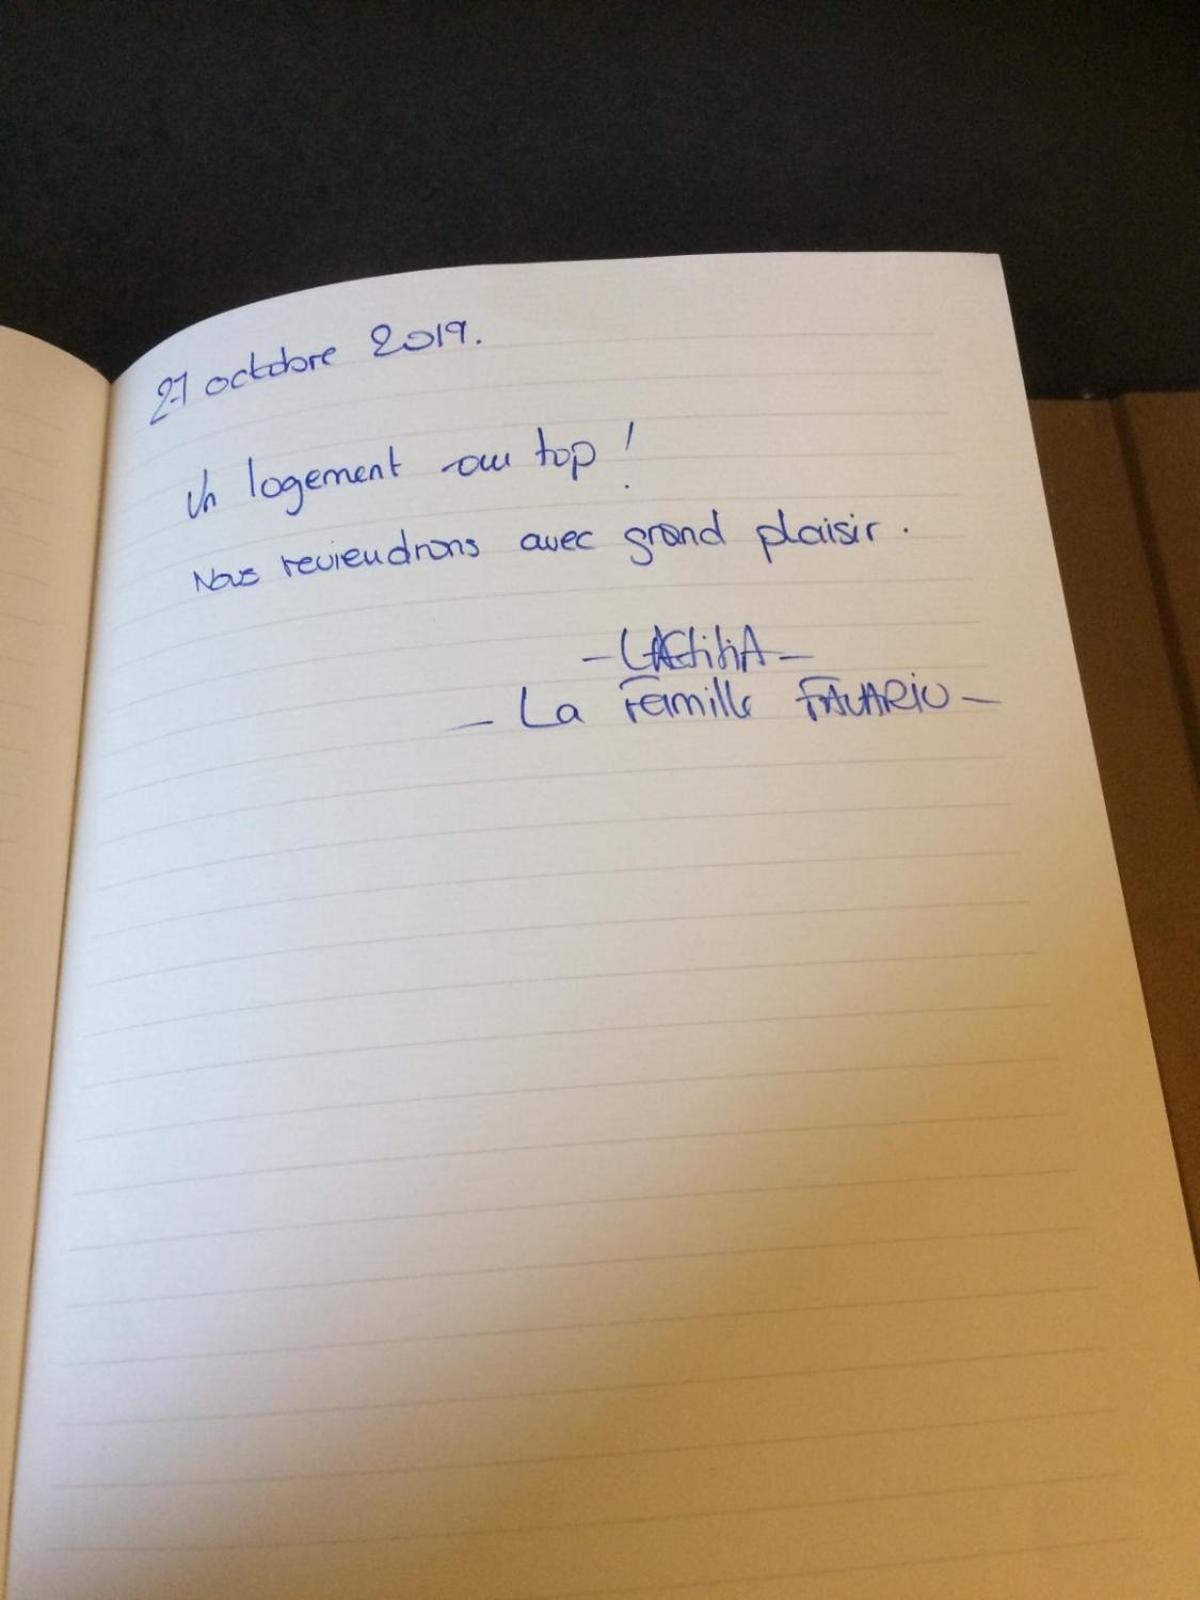 27 octobre 2019.
Un logement au top !
Nous reviendrons avec grand plaisir.
- LAEtitiA -
- La Famille FAVARIO -